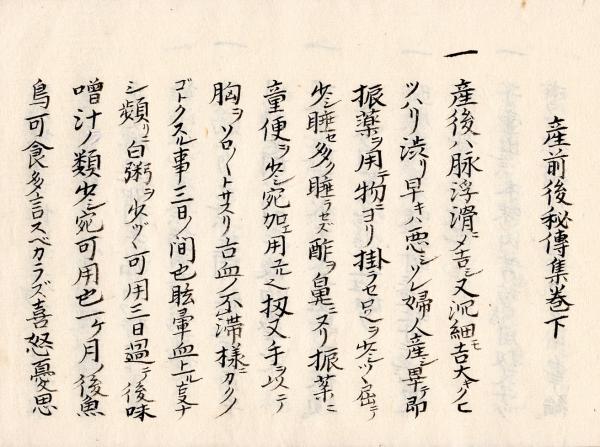 産前後秘傳集巻下
一 産後ハ脉浮滑ニメ吉シ又沉細モ吉大キク
ツハリ渋リ早キハ悪シソレ婦人産シ畢テ即
振薬ヲ用テ物ニヨリ掛ラセ足ヲ少シツヽ屈テ
少シ睡セ多ク睡ラセズ酢ヲ鼻ニヌリ振薬ニ
童便ヲ少シ宛加エ用
胸ヲソロ〳〵トサスリ古血ノ不滞様ニカクノ
ゴトクスル事三日ノ間也眩暈血上ル
シ頻リニ白粥ヲ少ヅヽ可用三日過テ後味
噌汁ノ類少シ宛可用也一ケ月ノ後魚
鳥可食多言スベカラズ喜怒憂思